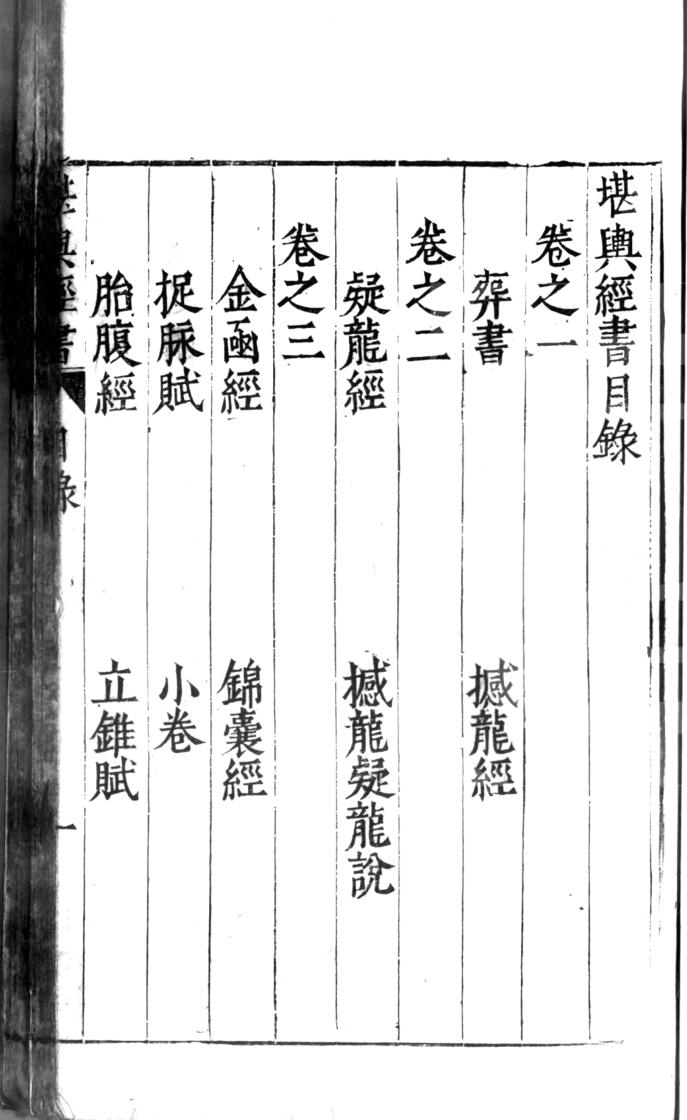 堪輿經書目錄
卷之一
葬書 撼龍經
卷之二
疑龍經 撼龍疑龍說
卷之三
金函經 錦囊經
捉脉賦 小卷
胎腹經 立錐賦
堪輿經書 目錄 一